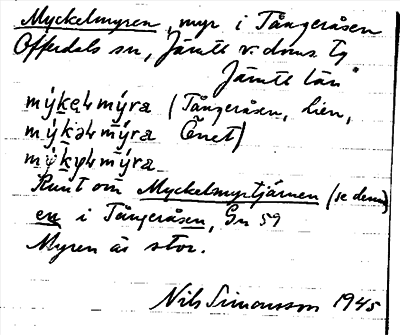 Myckelmyren, myr i Tångeråsen
Offerdals sn, Jämtl v. doms. ts
Jämtl län
mýkelmýra (Tångeråsen, Lien,
mýkəlmýra Önet)
mýkylmýra
Runt om Myckelmyrtjärnen (se denna)
en i Tångeråsen, Gn 59
Myren är stor.
Nils Simonsson 1945